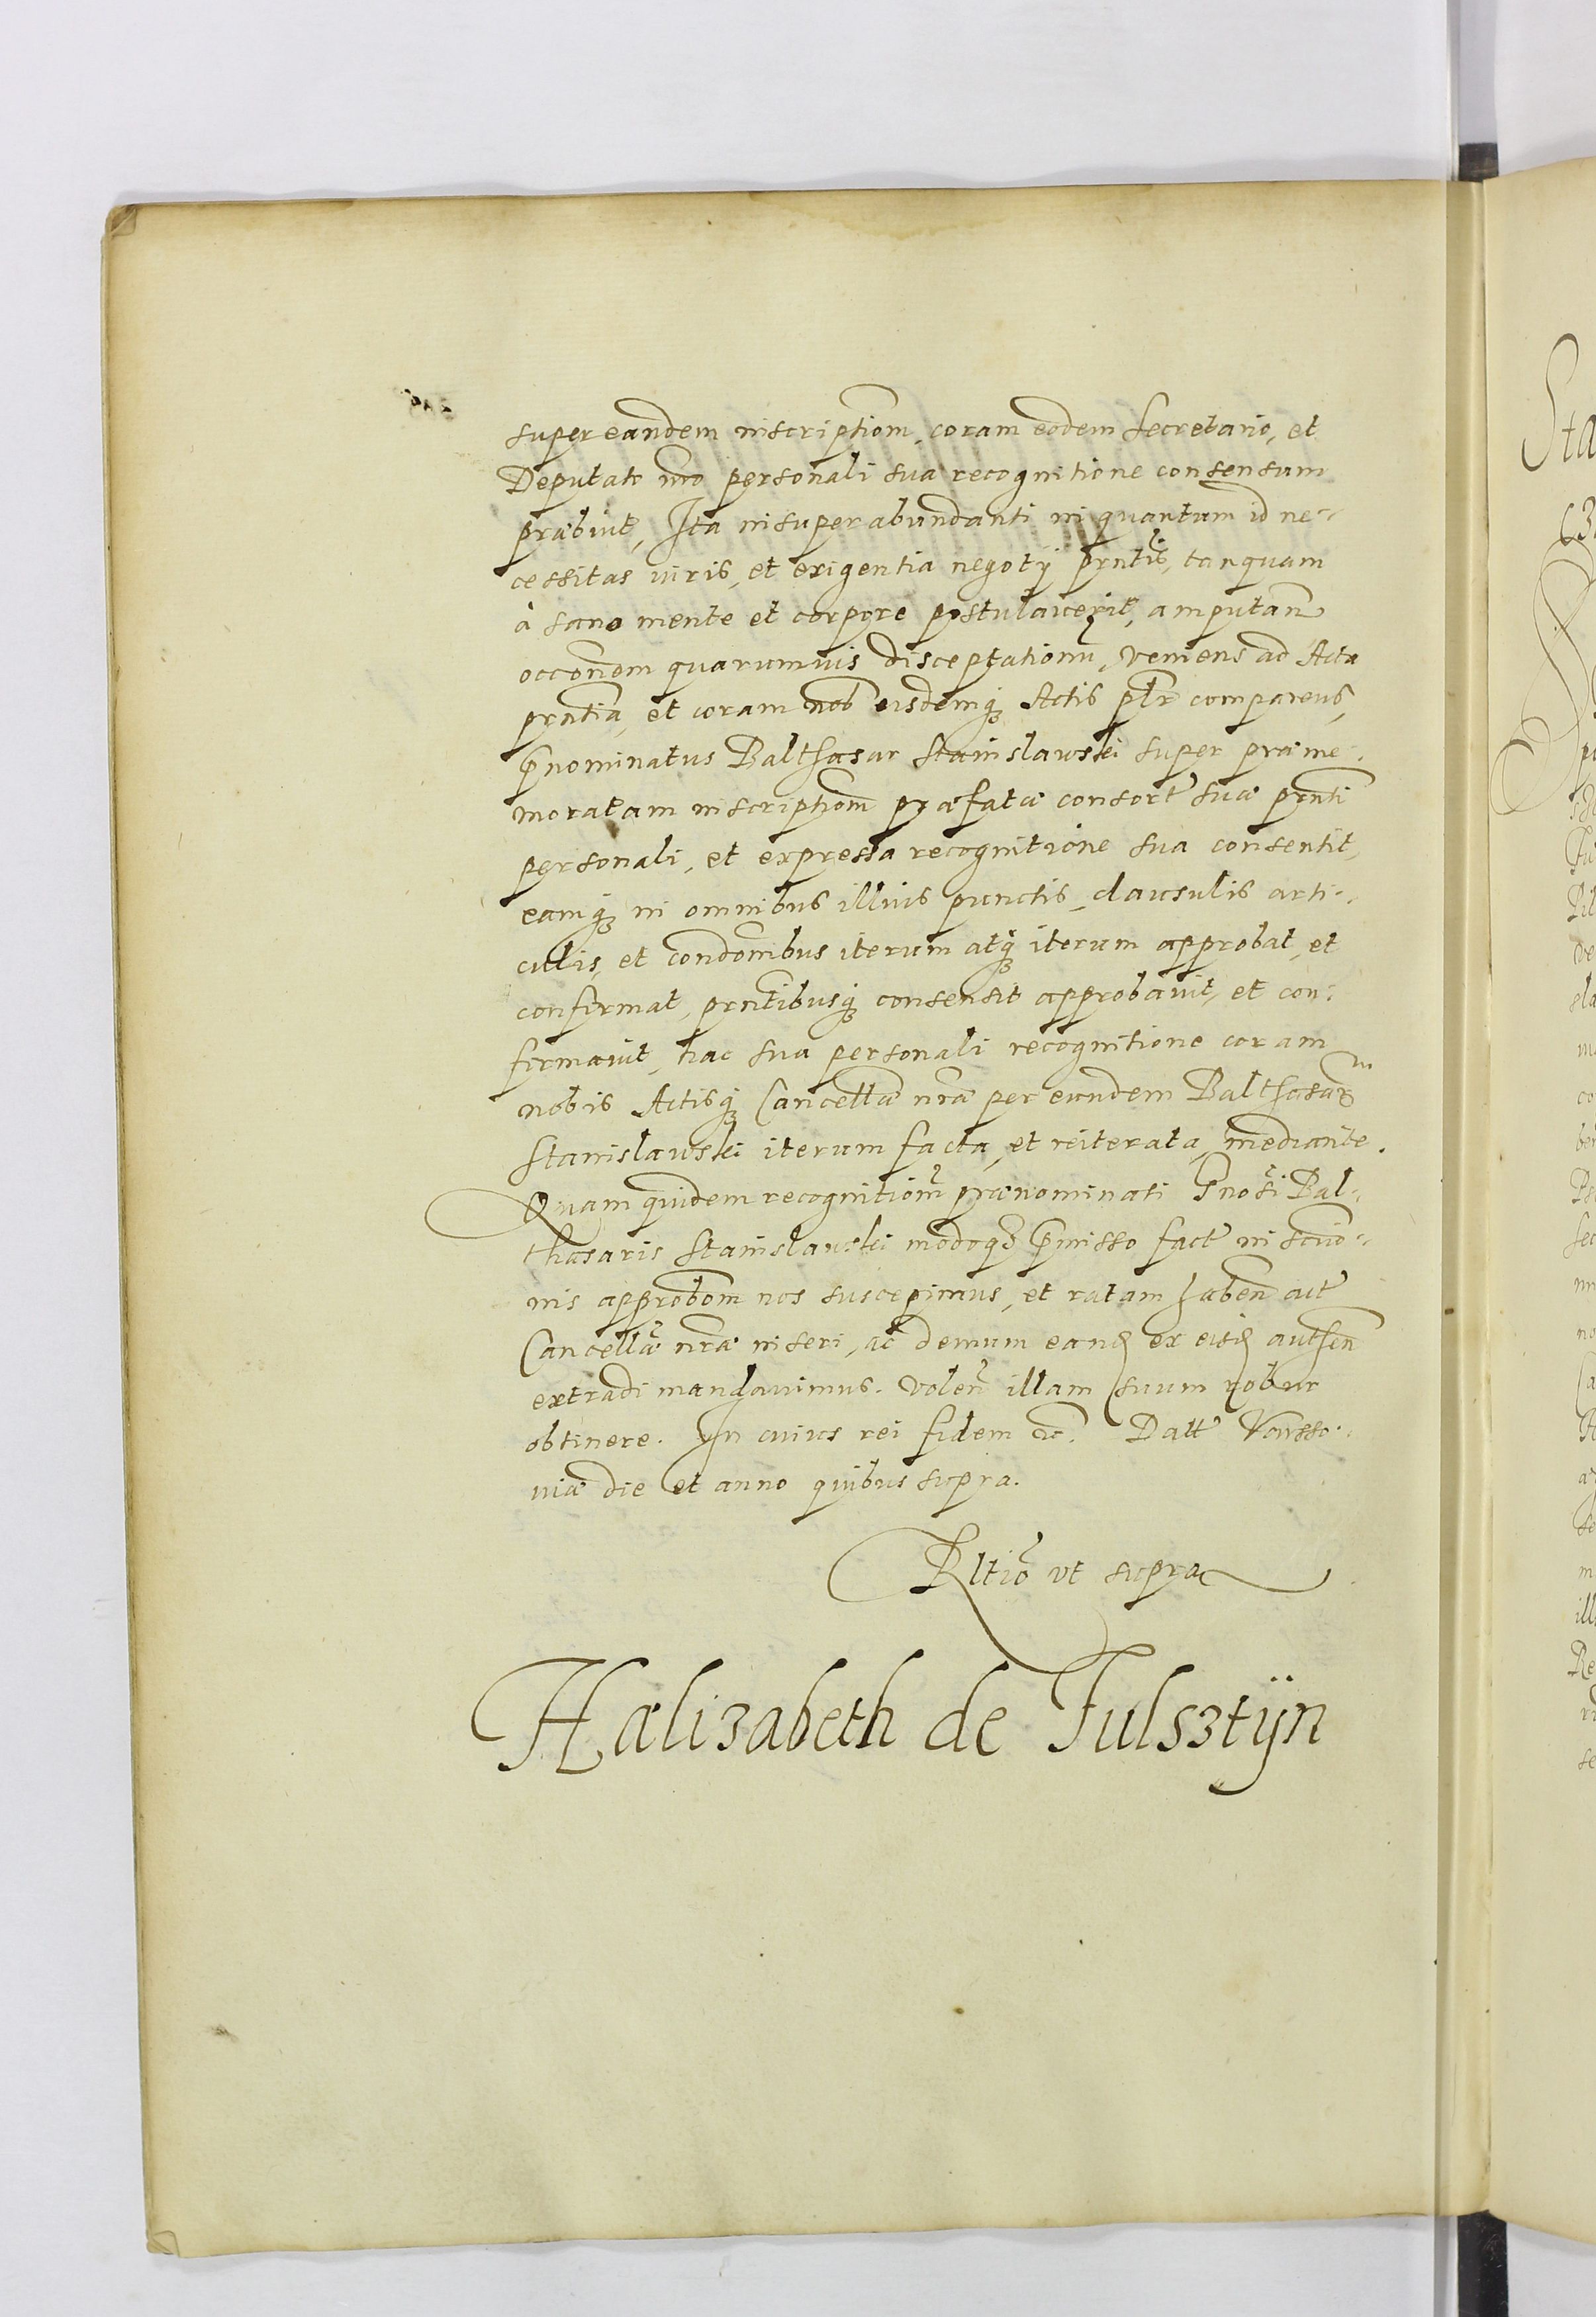 super eandem inscriptiom̃, coram eodem Secretario, et
Deputato nr̃o personali sua recognitione consensum
præbuit, Ita insuper abundanti in quantum id ne-
cessitas iuris, et exigentia negotij pr̃ntis, tanquam
à sano mente et corpore postulaverit, amputañ
occõnem quarumvis disceptationũ, veniens ad Acta
pr̃ntia, et coram nob̃ eisdemq́ꝫ Actis pl̃r comparens,
p̃nominatus Balthasar Stanislawski super præme-
moratam inscriptiom̃ præfatæ consort̃ suæ pr̃nti
personali, et expressa recognitione sua consentit,
eamq́ꝫ in omnibus illius punctis, clausulis arti-
culis, et condõnibus iterum atq́ꝫ iterum approbat, et
confirmat, pr̃ntibusq́ꝫ consensit approbavit, et con-
firmavit, hac sua personali recognitione coram
nobis Actisq́ꝫ Cancellæ nr̃æ per eundem Balthasarem
Stanislawski iterum facta, et reiterata, mediante.
Quam quidem recognitiom̃ prænominati G̃nosi Bal-
thasaris Stanislawski modoqꝫ p̃misso fact̃ inscrip̃o-
nis approbõm nos suscepimus, et ratam habeñ act̃
Cancellæ nr̃æ inseri, ac demum eand ex eisd authen̄
extradi mandavimus. Voleñ illam suum robur
obtinere. In cuius rei fidem &c. Datt̃ Varsso-
viæ die et anno quibus supra.
Rl̃tio ut supra
Hælizabeth de Fulsztÿn